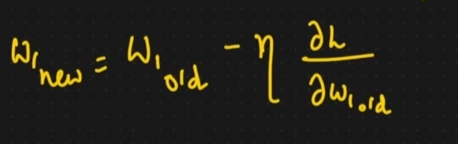 W₁ new = W₁ old - η ∂L/∂W₁ old